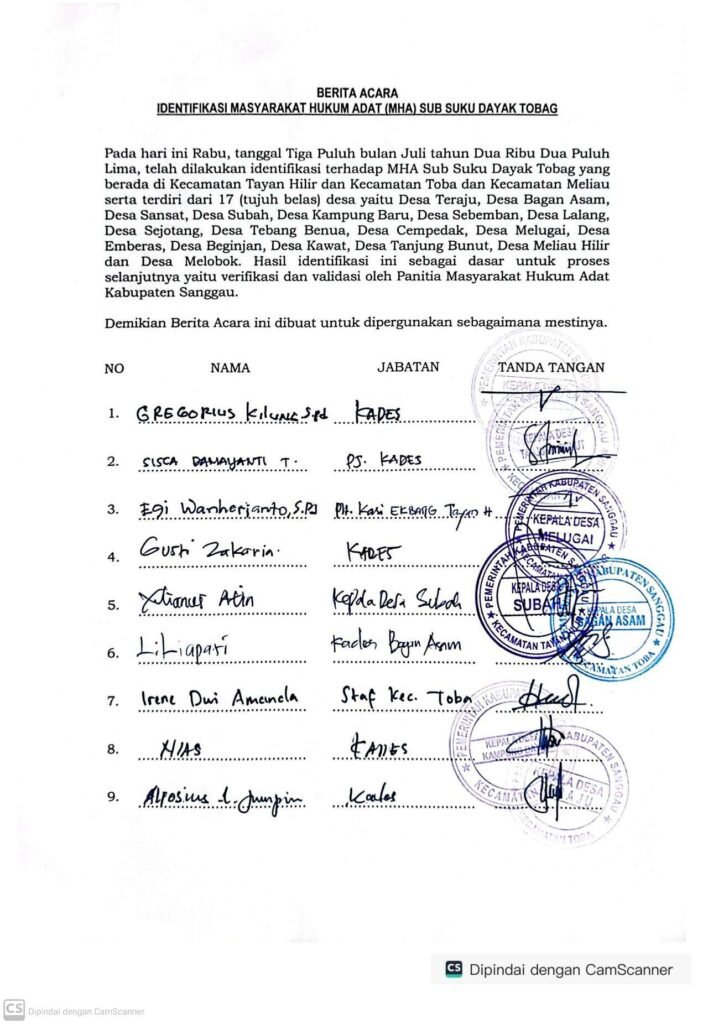 BERITA ACARA
IDENTIFIKASI MASYARAKAT HUKUM ADAT (MHA) SUB SUKU DAYAK TOBAG
Pada hari ini Rabu, tanggal Tiga Puluh bulan Juli tahun Dua Ribu Dua Puluh
Lima, telah dilakukan identifikasi terhadap MHA Sub Suku Dayak Tobag yang
berada di Kecamatan Tayan Hilir dan Kecamatan Toba dan Kecamatan Meliau
serta terdiri dari 17 (tujuh belas) desa yaitu Desa Teraju, Desa Bagan Asam,
Desa Sansat, Desa Subah, Desa Kampung Baru, Desa Sebemban, Desa Lalang,
Desa Sejotang, Desa Tebang Benua, Desa Cempedak, Desa Melugai, Desa
Emberas, Desa Beginjan, Desa Kawat, Desa Tanjung Bunut, Desa Meliau Hilir
dan Desa Melobok. Hasil identifikasi ini sebagai dasar untuk proses
selanjutnya yaitu verifikasi dan validasi oleh Panitia Masyarakat Hukum Adat
Kabupaten Sanggau.
Demikian Berita Acara ini dibuat untuk dipergunakan sebagaimana mestinya.
NO NAMA JABATAN TANDA TANGAN
1. GREGORIUS KILUNG, S.Pd KADES
2. SISCA DAMAYANTI T. PJ. KADES
3. Egi Wanherjanto, S.Pd Plt. Kasi EKBANG Tayan H
4. Gusti Zakaria KADES
5. Atin Kepala Desa Subah
6. Liliapari Kades Bagan Asam
7. Irene Dwi Amanda Staf Kec. Toba
8. HIAS KADES
9. Kades
PEMERINTAH KABUPATEN SANGGAU
KEPALA DESA
MELUGAI
PEMERINTAH KABUPATEN SANGGAU
KEPALA DESA
SUBAH
KECAMATAN TAYAN HILIR
KABUPATEN SANGGAU
KEPALA DESA
BAGAN ASAM
KECAMATAN TOBA
KEPALA DESA
KECAMATAN TOBA
CS Dipindai dengan CamScanner
CS Dipindai dengan CamScanner